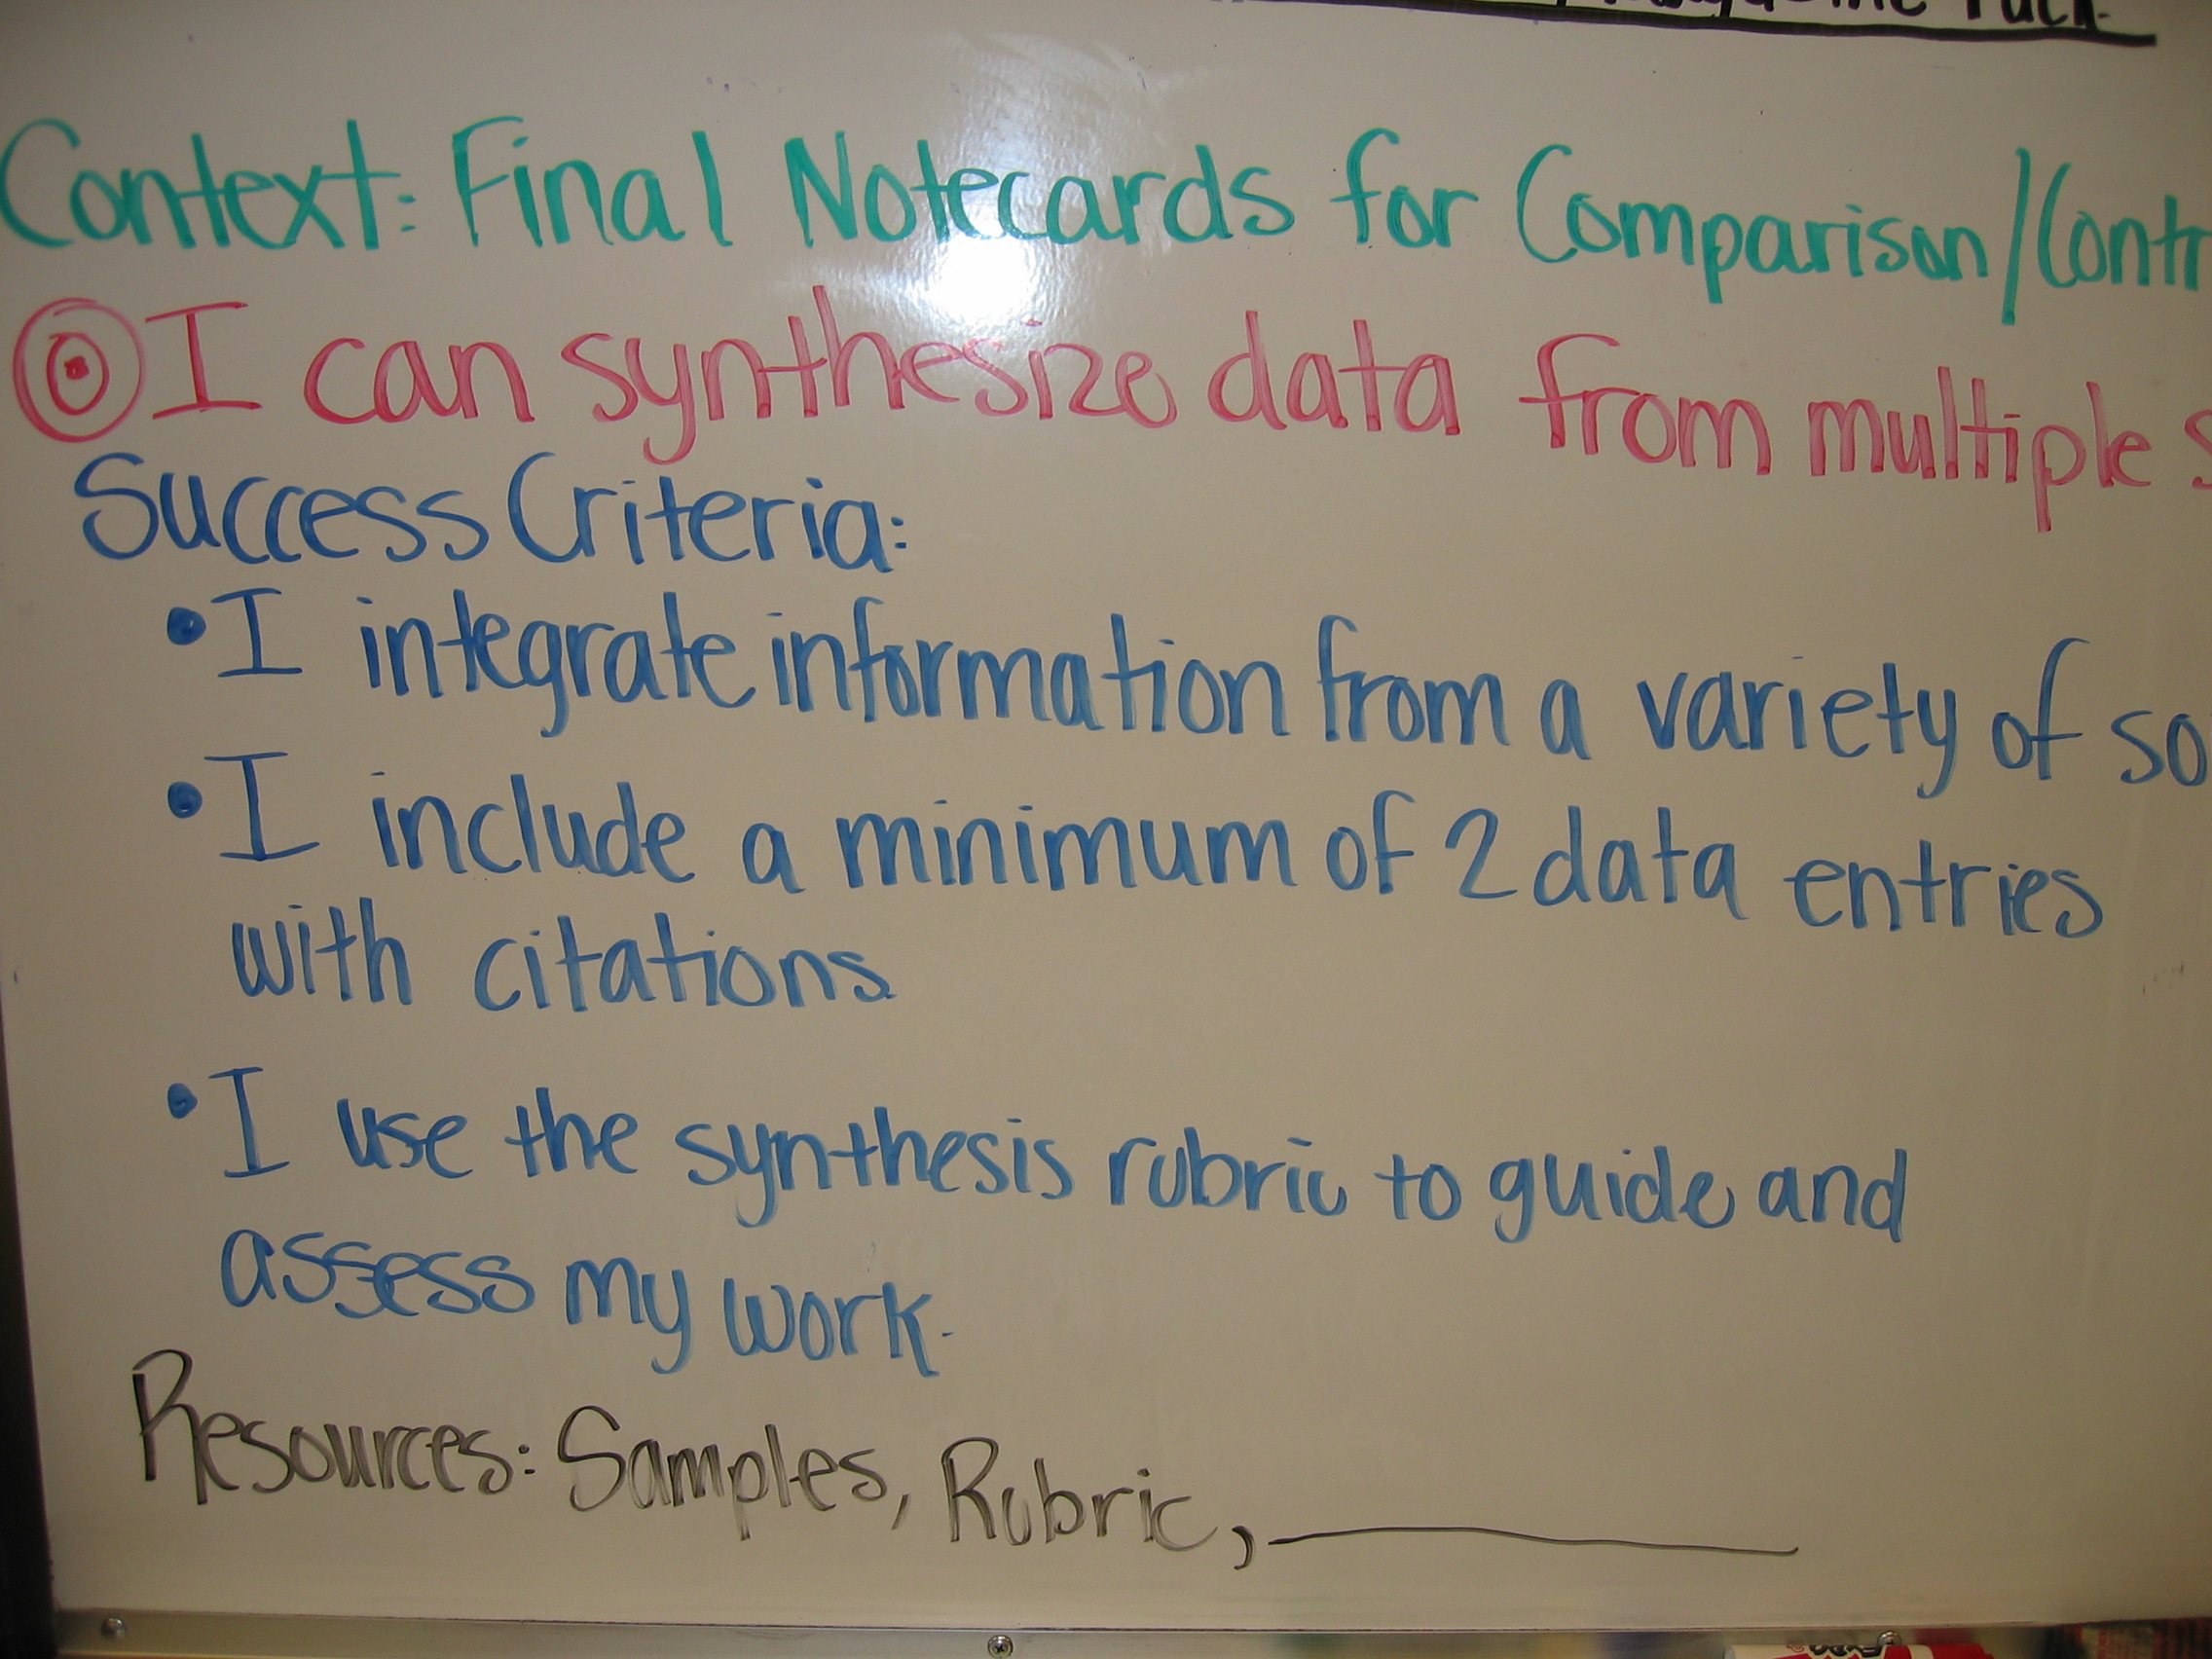 Context: Final Notecards for Comparison/Contr
I can synthesize data from multiple s
Success Criteria:
• I integrate information from a variety of so
• I include a minimum of 2 data entries
with citations.
• I use the synthesis rubric to guide and
assess my work.
Resources: Samples, Rubric, ________